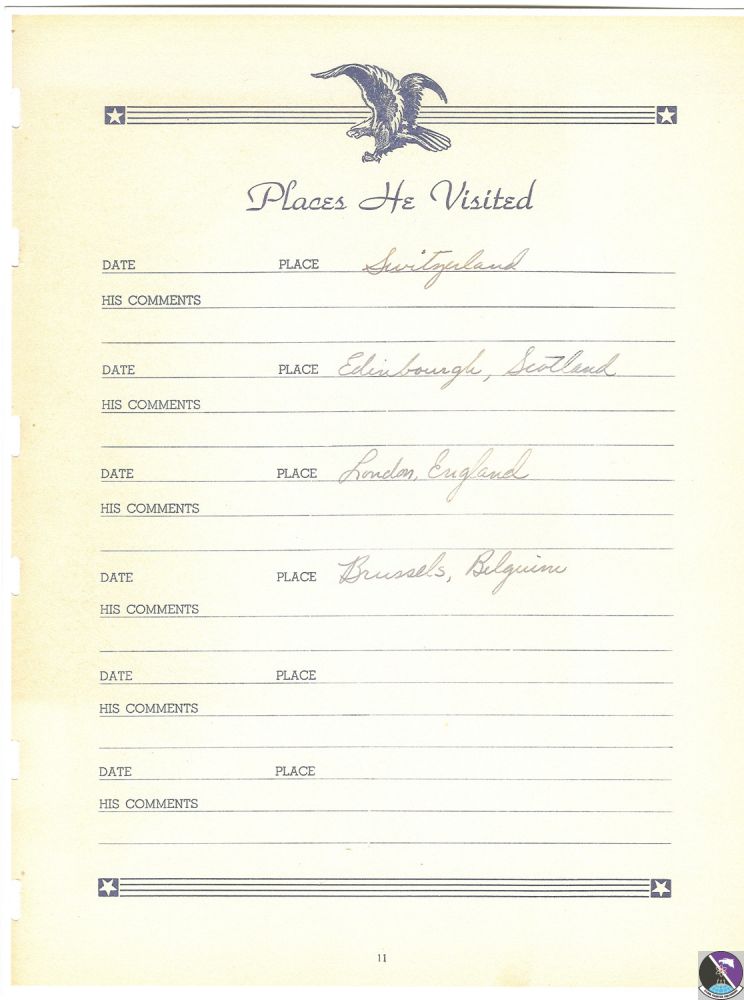 Places He Visited
DATE PLACE Switzerland
HIS COMMENTS
DATE PLACE Edinbourgh, Scotland
HIS COMMENTS
DATE PLACE London, England
HIS COMMENTS
DATE PLACE Brussels, Belguim
HIS COMMENTS
DATE PLACE
HIS COMMENTS
DATE PLACE
HIS COMMENTS
11